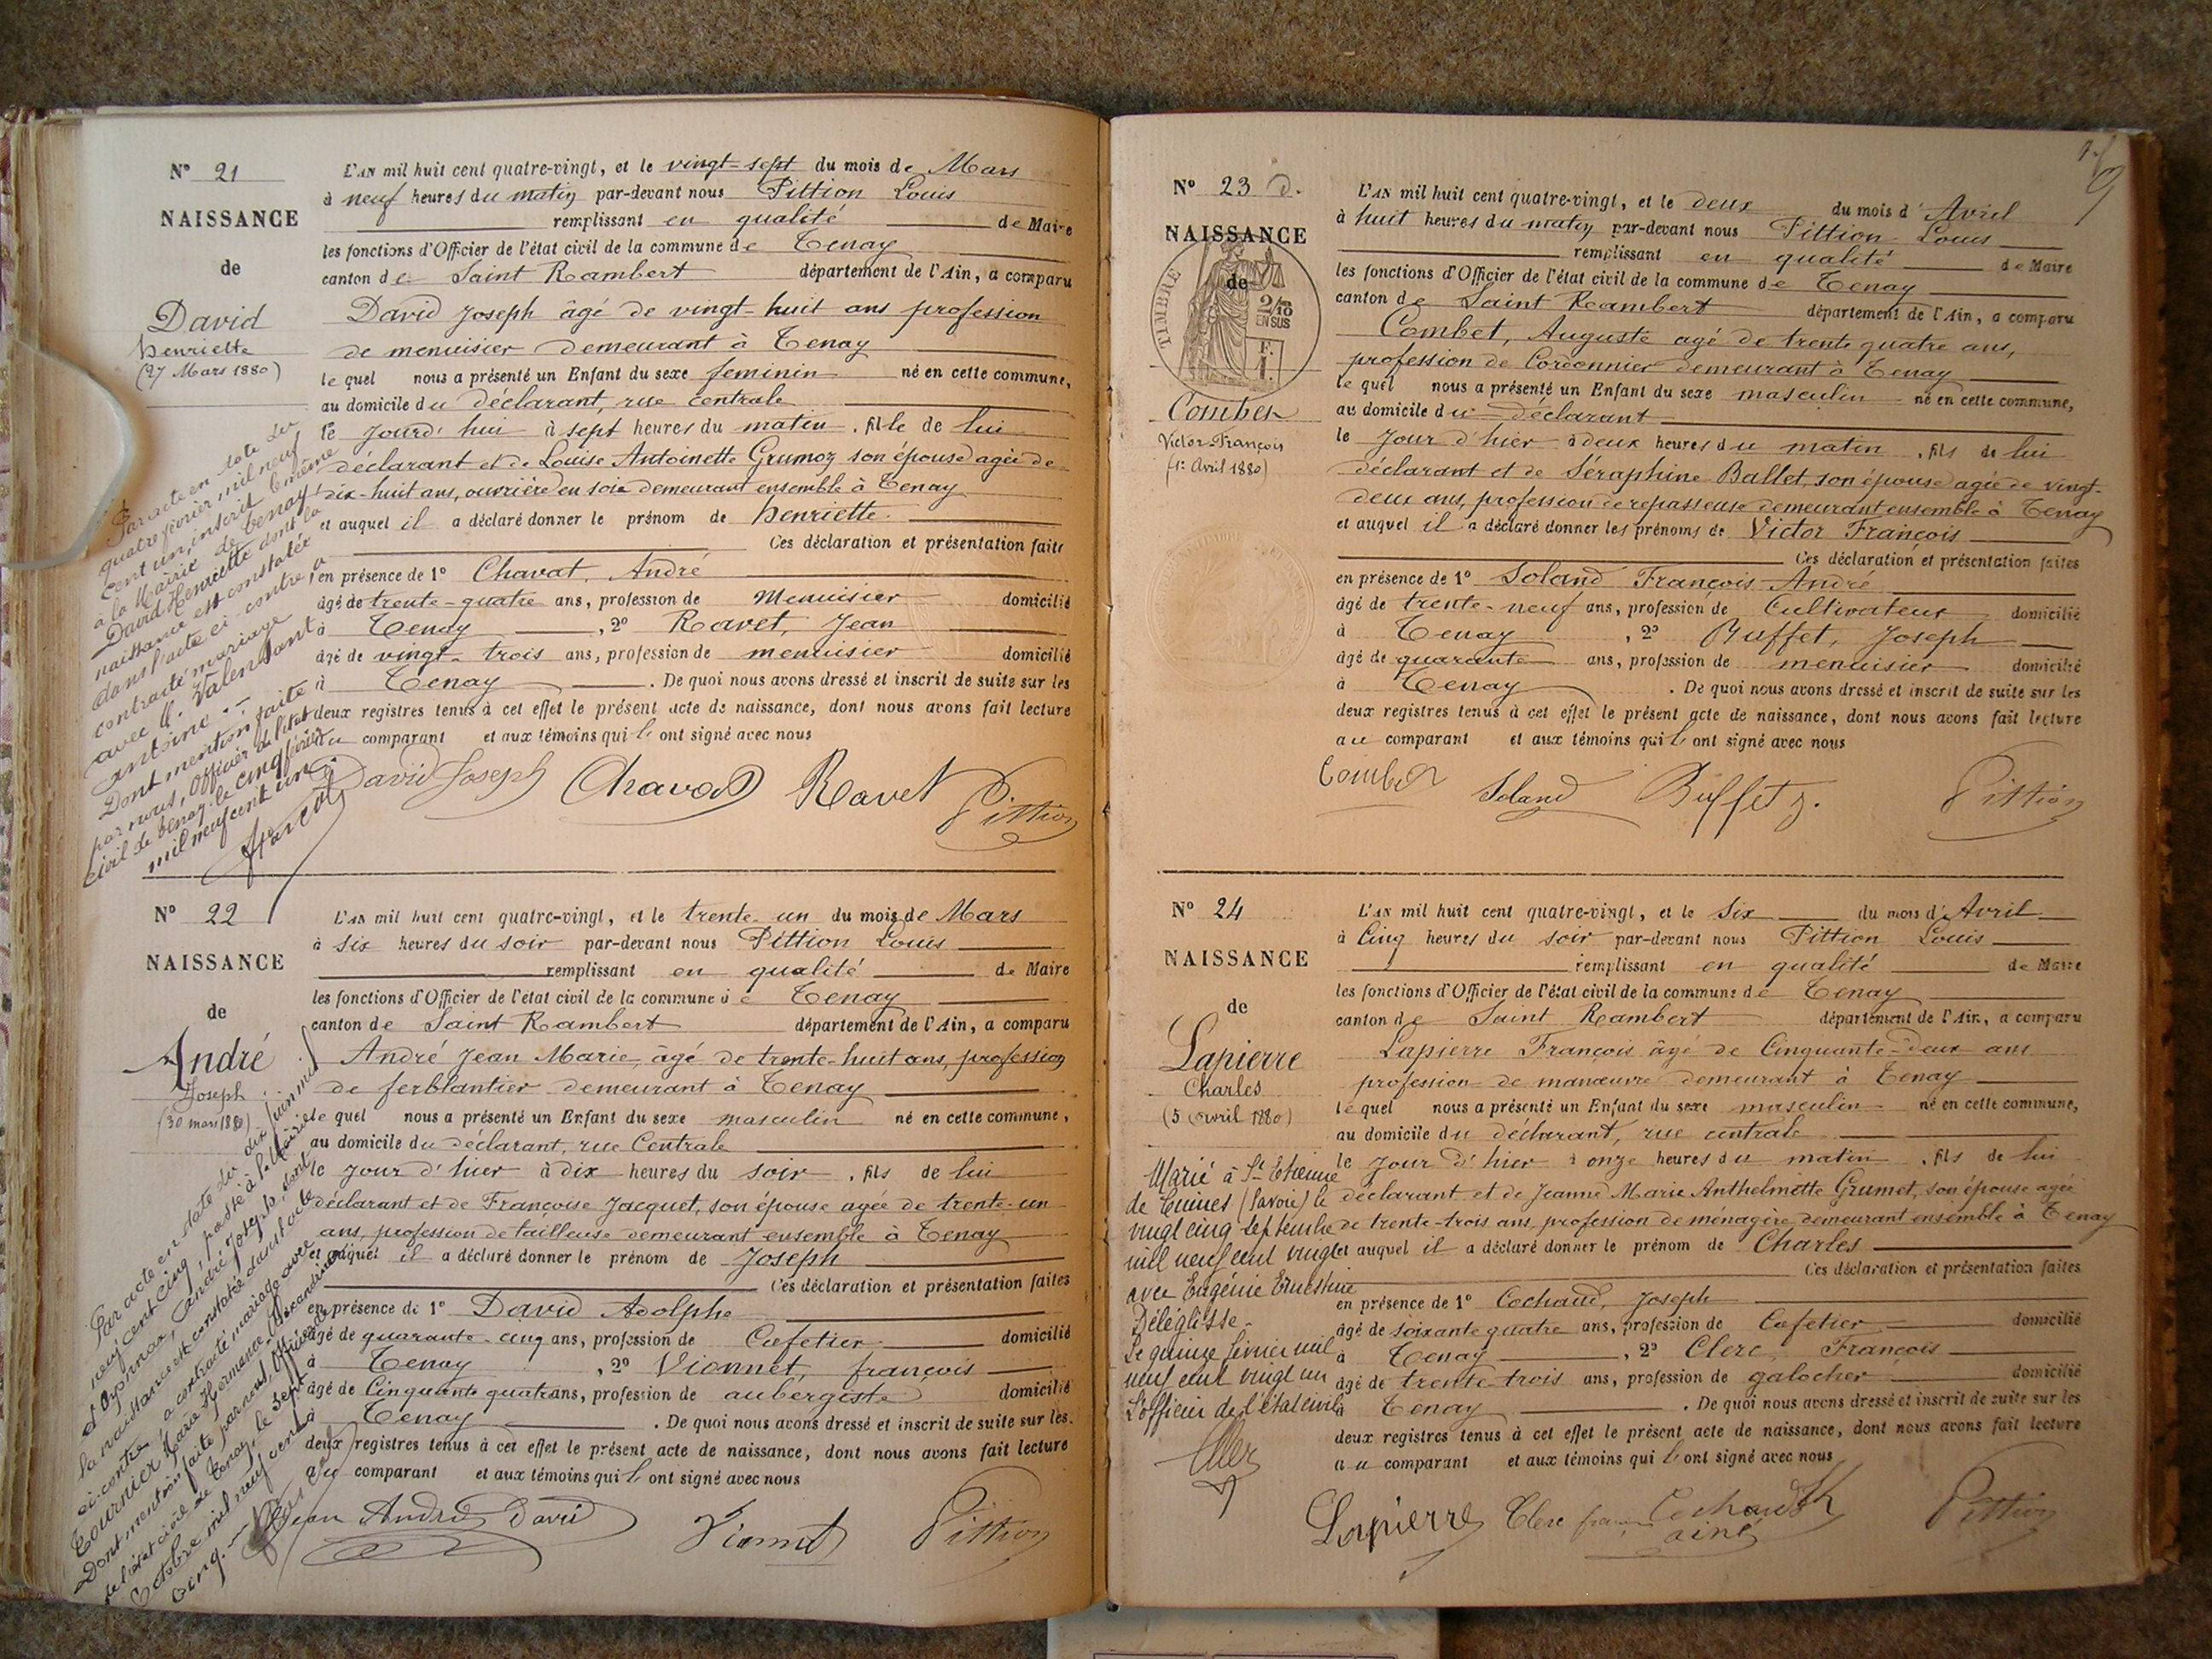 N° 21
NAISSANCE
de
David
Henriette
(27 Mars 1880)
L'AN mil huit cent quatre-vingt, et le vingt-sept du mois de Mars
à neuf heures du matin par-devant nous Pittion Louis
remplissant en qualité de Maire
les fonctions d'Officier de l'état civil de la commune de Tenay
canton de Saint Rambert département de l'Ain, a comparu
David Joseph âgé de vingt-huit ans profession
de menuisier demeurant à Tenay
le quel nous a présenté un Enfant du sexe feminin né en cette commune,
au domicile du déclarant, rue centrale
le jourd'hui à sept heures du matin, fille de lui
déclarant et de Louise Antoinette Grumoz son épouse agée de
dix-huit ans, ouvrière en soie demeurant ensemble à Tenay
et auquel il a déclaré donner le prénom de Henriette
Ces déclaration et présentation faite
en présence de 1° Chavat, André
âgé de trente-quatre ans, profession de Menuisier domicilié
à Tenay, 2° Ravet, Jean
âgé de vingt-trois ans, profession de menuisier domicilié
à Tenay. De quoi nous avons dressé et inscrit de suite sur les
deux registres tenus à cet effet le présent acte de naissance, dont nous avons fait lecture
au comparant et aux témoins qui ont signé avec nous
David Joseph Chavat Ravet Pittion
Par acte en date du
quatre février mil neuf
cent un, inscrit le même
à la Mairie de Tenay,
David Henriette dont la
naissance est constatée
dans l'acte ci-contre a
contracté mariage
avec M. Valensant
Antoine.
Dont mention faite
par nous, Officier de l'état
civil de Tenay, le cinq février
mil neuf cent un.
N° 22
NAISSANCE
de
André
Joseph
(30 mars 1880)
L'AN mil huit cent quatre-vingt, et le trente-un du mois de Mars
à six heures du soir par-devant nous Pittion Louis
remplissant en qualité de Maire
les fonctions d'Officier de l'état civil de la commune de Tenay
canton de Saint Rambert département de l'Ain, a comparu
André Jean Marie, âgé de trente-huit ans, profession
de ferblantier demeurant à Tenay
le quel nous a présenté un Enfant du sexe masculin né en cette commune,
au domicile du déclarant, rue Centrale
le jour d'hier à dix heures du soir, fils de lui
déclarant et de Françoise Jacquet, son épouse agée de trente-un
ans, profession de tailleuse demeurant ensemble à Tenay
et auquel il a déclaré donner le prénom de Joseph
Ces déclaration et présentation faites
en présence de 1° David Adolphe
âgé de quarante-cinq ans, profession de Cafetier domicilié
à Tenay, 2° Vionnet, françois
âgé de Cinquante quatre ans, profession de aubergiste domicilié
à Tenay. De quoi nous avons dressé et inscrit de suite sur les
deux registres tenus à cet effet le présent acte de naissance, dont nous avons fait lecture
au comparant et aux témoins qui ont signé avec nous
Jean André David Vionnet Pittion
Par acte en date du dix juin mil
neuf cent cinq, passé à la Mairie
d'Oyonnax, André Joseph, dont
la naissance est constatée dans l'acte
ci-contre, a contracté mariage avec
Tournier Marie Hermance Alexandrine.
Dont mention faite par nous, Officier
de l'état civil de Tenay, le sept
Octobre mil neuf cent
cinq.
N° 23 D.
NAISSANCE
de
TIMBRE
2/10
EN SUS
Combet
Victor-François
(1er Avril 1880)
L'AN mil huit cent quatre-vingt, et le deux du mois d'Avril
à huit heures du matin par-devant nous Pittion Louis
remplissant en qualité de Maire
les fonctions d'Officier de l'état civil de la commune de Tenay
canton de Saint Rambert département de l'Ain, a comparu
Combet, Auguste agé de trente quatre ans,
profession de Cordonnier demeurant à Tenay
le quel nous a présenté un Enfant du sexe masculin né en cette commune,
au domicile du déclarant
le jour d'hier à deux heures du matin, fils de lui
déclarant et de Séraphine Ballet, son épouse agée de vingt-
deux ans, profession de repasseuse demeurant ensemble à Tenay
et auquel il a déclaré donner les prénoms de Victor François
Ces déclaration et présentation faites
en présence de 1° Soland François-André
âgé de trente-neuf ans, profession de Cultivateur domicilié
à Tenay, 2° Buffet, Joseph
âgé de quarante ans, profession de menuisier domicilié
à Tenay. De quoi nous avons dressé et inscrit de suite sur les
deux registres tenus à cet effet le présent acte de naissance, dont nous avons fait lecture
au comparant et aux témoins qui ont signé avec nous
Combet Soland Buffet J. Pittion
N° 24
NAISSANCE
de
Lapierre
Charles
(5 avril 1880)
L'AN mil huit cent quatre-vingt, et le Six du mois d'Avril
à Cinq heures du soir par-devant nous Pittion Louis
remplissant en qualité de Maire
les fonctions d'Officier de l'état civil de la commune de Tenay
canton de Saint Rambert département de l'Ain, a comparu
Lapierre François âgé de Cinquante-deux ans
profession de manœuvre demeurant à Tenay
le quel nous a présenté un Enfant du sexe masculin né en cette commune,
au domicile du déclarant, rue centrale
le jour d'hier à onze heures du matin, fils de lui
déclarant et de Jeanne Marie Anthelmette Grumet, son épouse agée
de trente-trois ans, profession de ménagère demeurant ensemble à Tenay
et auquel il a déclaré donner le prénom de Charles
Ces déclaration et présentation faites
en présence de 1° Cochaud, Joseph
âgé de soixante quatre ans, profession de Cafetier domicilié
à Tenay, 2° Clerc, François
âgé de trente-trois ans, profession de galocher domicilié
à Tenay. De quoi nous avons dressé et inscrit de suite sur les
deux registres tenus à cet effet le présent acte de naissance, dont nous avons fait lecture
au comparant et aux témoins qui ont signé avec nous
Lapierre Clerc Cochaud ainé Pittion
Marié à St Etienne
de Cuines (Savoie) le
vingt cinq septembre
mil neuf cent vingt
avec Eugénie Ernestine
Déléglisse
Le quinze février mil
neuf cent vingt un
L'officier de l'état civil